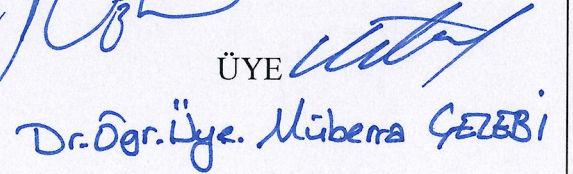 ÜYE
Dr. Öğr. Üye. Müberra ÇELEBİ